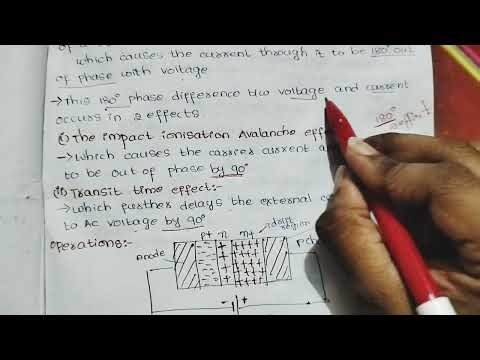 which causes the current through it to be 180° out
of phase with voltage
→This 180° phase difference b/w voltage and current
occurs in 2 effects
(i) The impact ionisation Avalanche effe
→which causes the carrier current a
to be out of phase by 90°
(ii) Transit time effect:-
→which further delays the external c
to AC voltage by 90°
180°
Operations:-
P+ n n+
drift
region
+